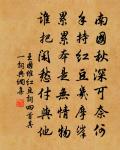 南國秋深可奈何
手持紅豆幾摩挲
累累本是無情物
誰把閒愁付與他
王國維紅豆詞四首其一
詞典網集